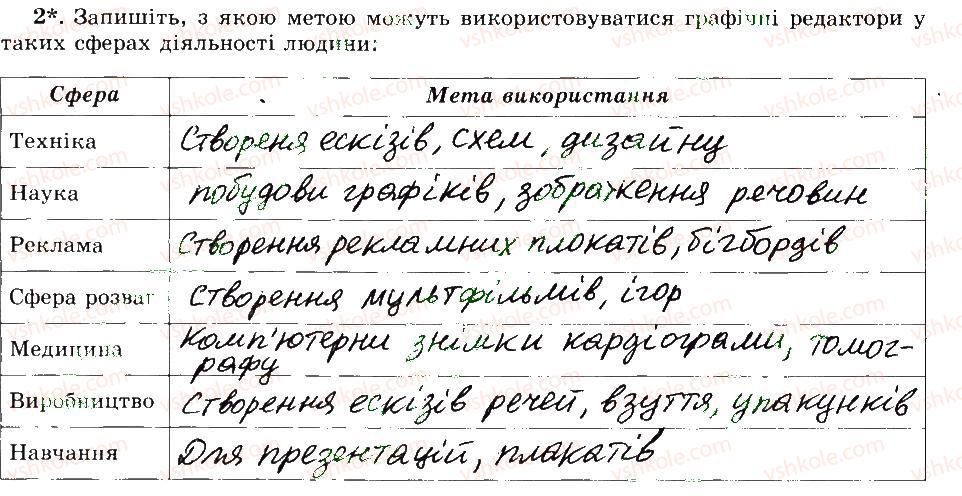 2*. Запишіть, з якою метою можуть використовуватися графічні редактори у
таких сферах діяльності людини:
Сфера Мета використання
Техніка Створеня ескізів, схем, дизайну
Наука побудови графіків, зображення речовин
Реклама Створення рекламних плокатів, бігбордів
Сфера розваг Створення мультфільмів, ігор
Медицина Комп'ютерни знімки кардіограми, томог-
рафу
Виробництво Створення ескізів речей, взуття, упакунків
Навчання Для презентацій, плакатів